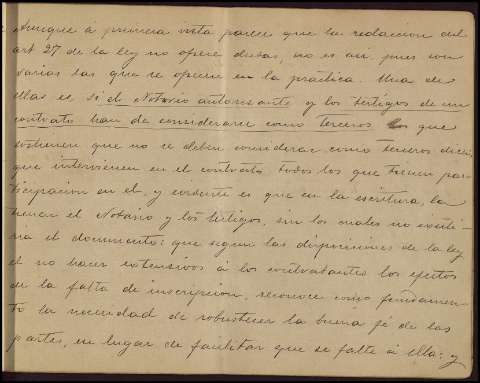 Aunque á primera vista parece que la redaccion del
art 27 de la ley no ofrece dudas, no es asi, pues son
varias las que se ofrecen en la práctica. Una de
ellas es si el Notario autorizante y los testigos de un
contrato han de considerarse como terceros los que
sostienen que no se deben considerar como terceros dicen
que intervienen en el contrato todos los que tienen par-
ticipacion en el, y evidente es que en la escritura, la
tienen el Notario y los testigos, sin los cuales no existi-
ria el documento: que segun las disposiciones de la ley
el no hacer extensivos á los contratantes los efectos
de la falta de inscripcion, reconoce como fundamen-
to la necesidad de robustecer la buena fé de las
partes, en lugar de facilitar que se falte á ella: y